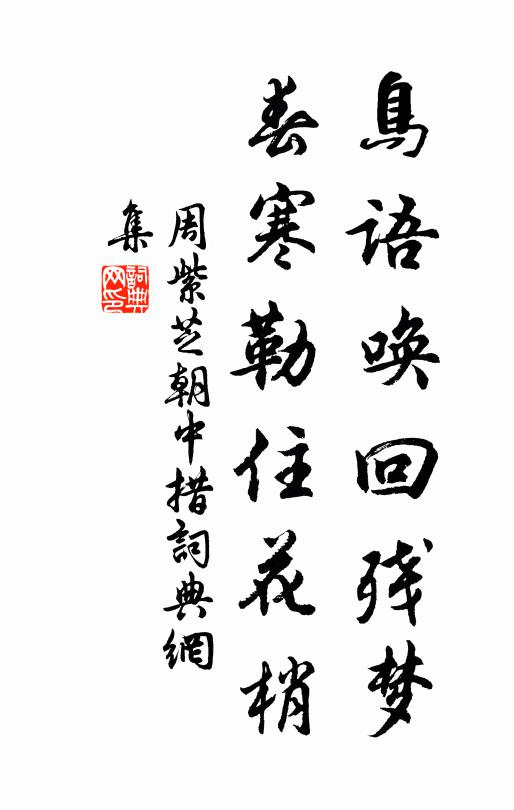 鳥語唤回残梦
春寒勒住花梢
周紫芝朝中措詞典網
集
詞典
网印